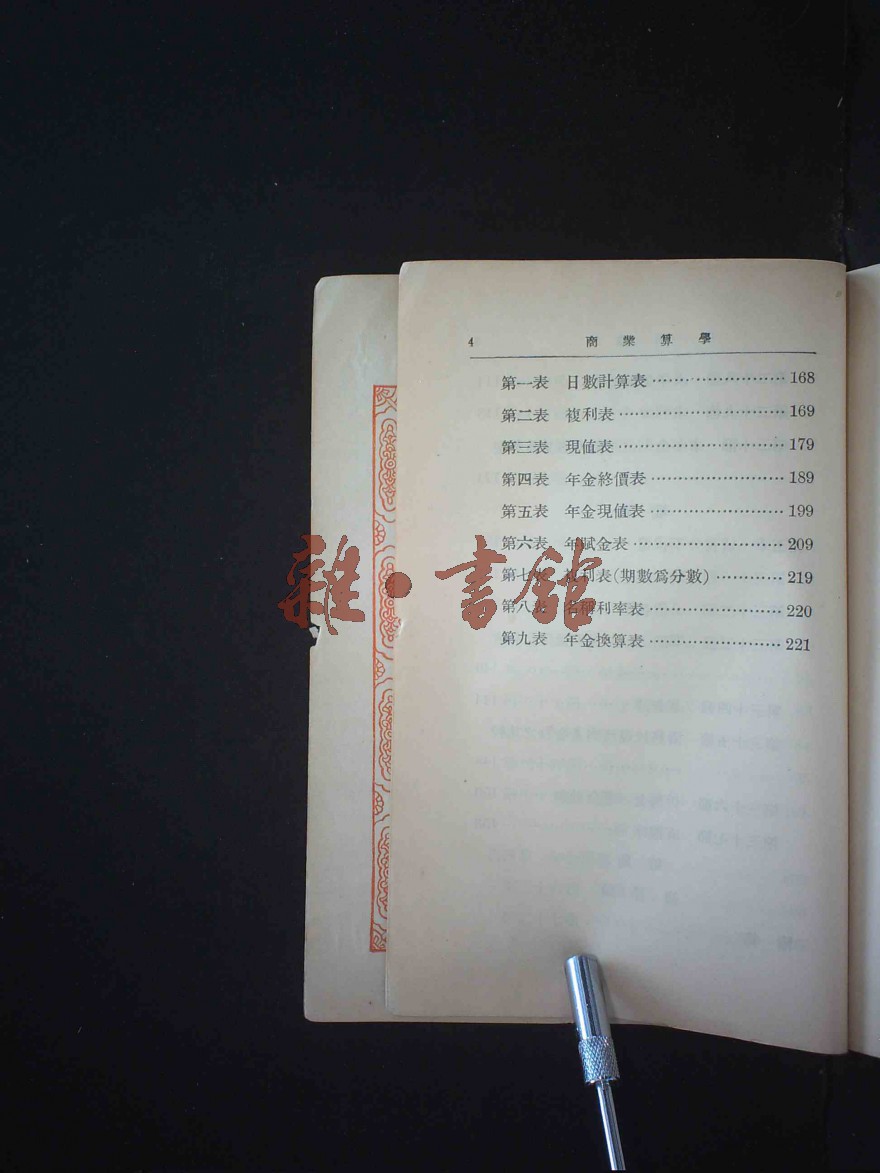 4 商業算學
第一表 日數計算表……………………168
第二表 複利表…………………………169
第三表 現値表…………………………179
第四表 年金終價表……………………189
第五表 年金現値表……………………199
第六表 年賦金表………………………209
第七表 複利表(期數爲分數)…………219
第八表 名稱利率表……………………220
第九表 年金換算表……………………221
雜·書館